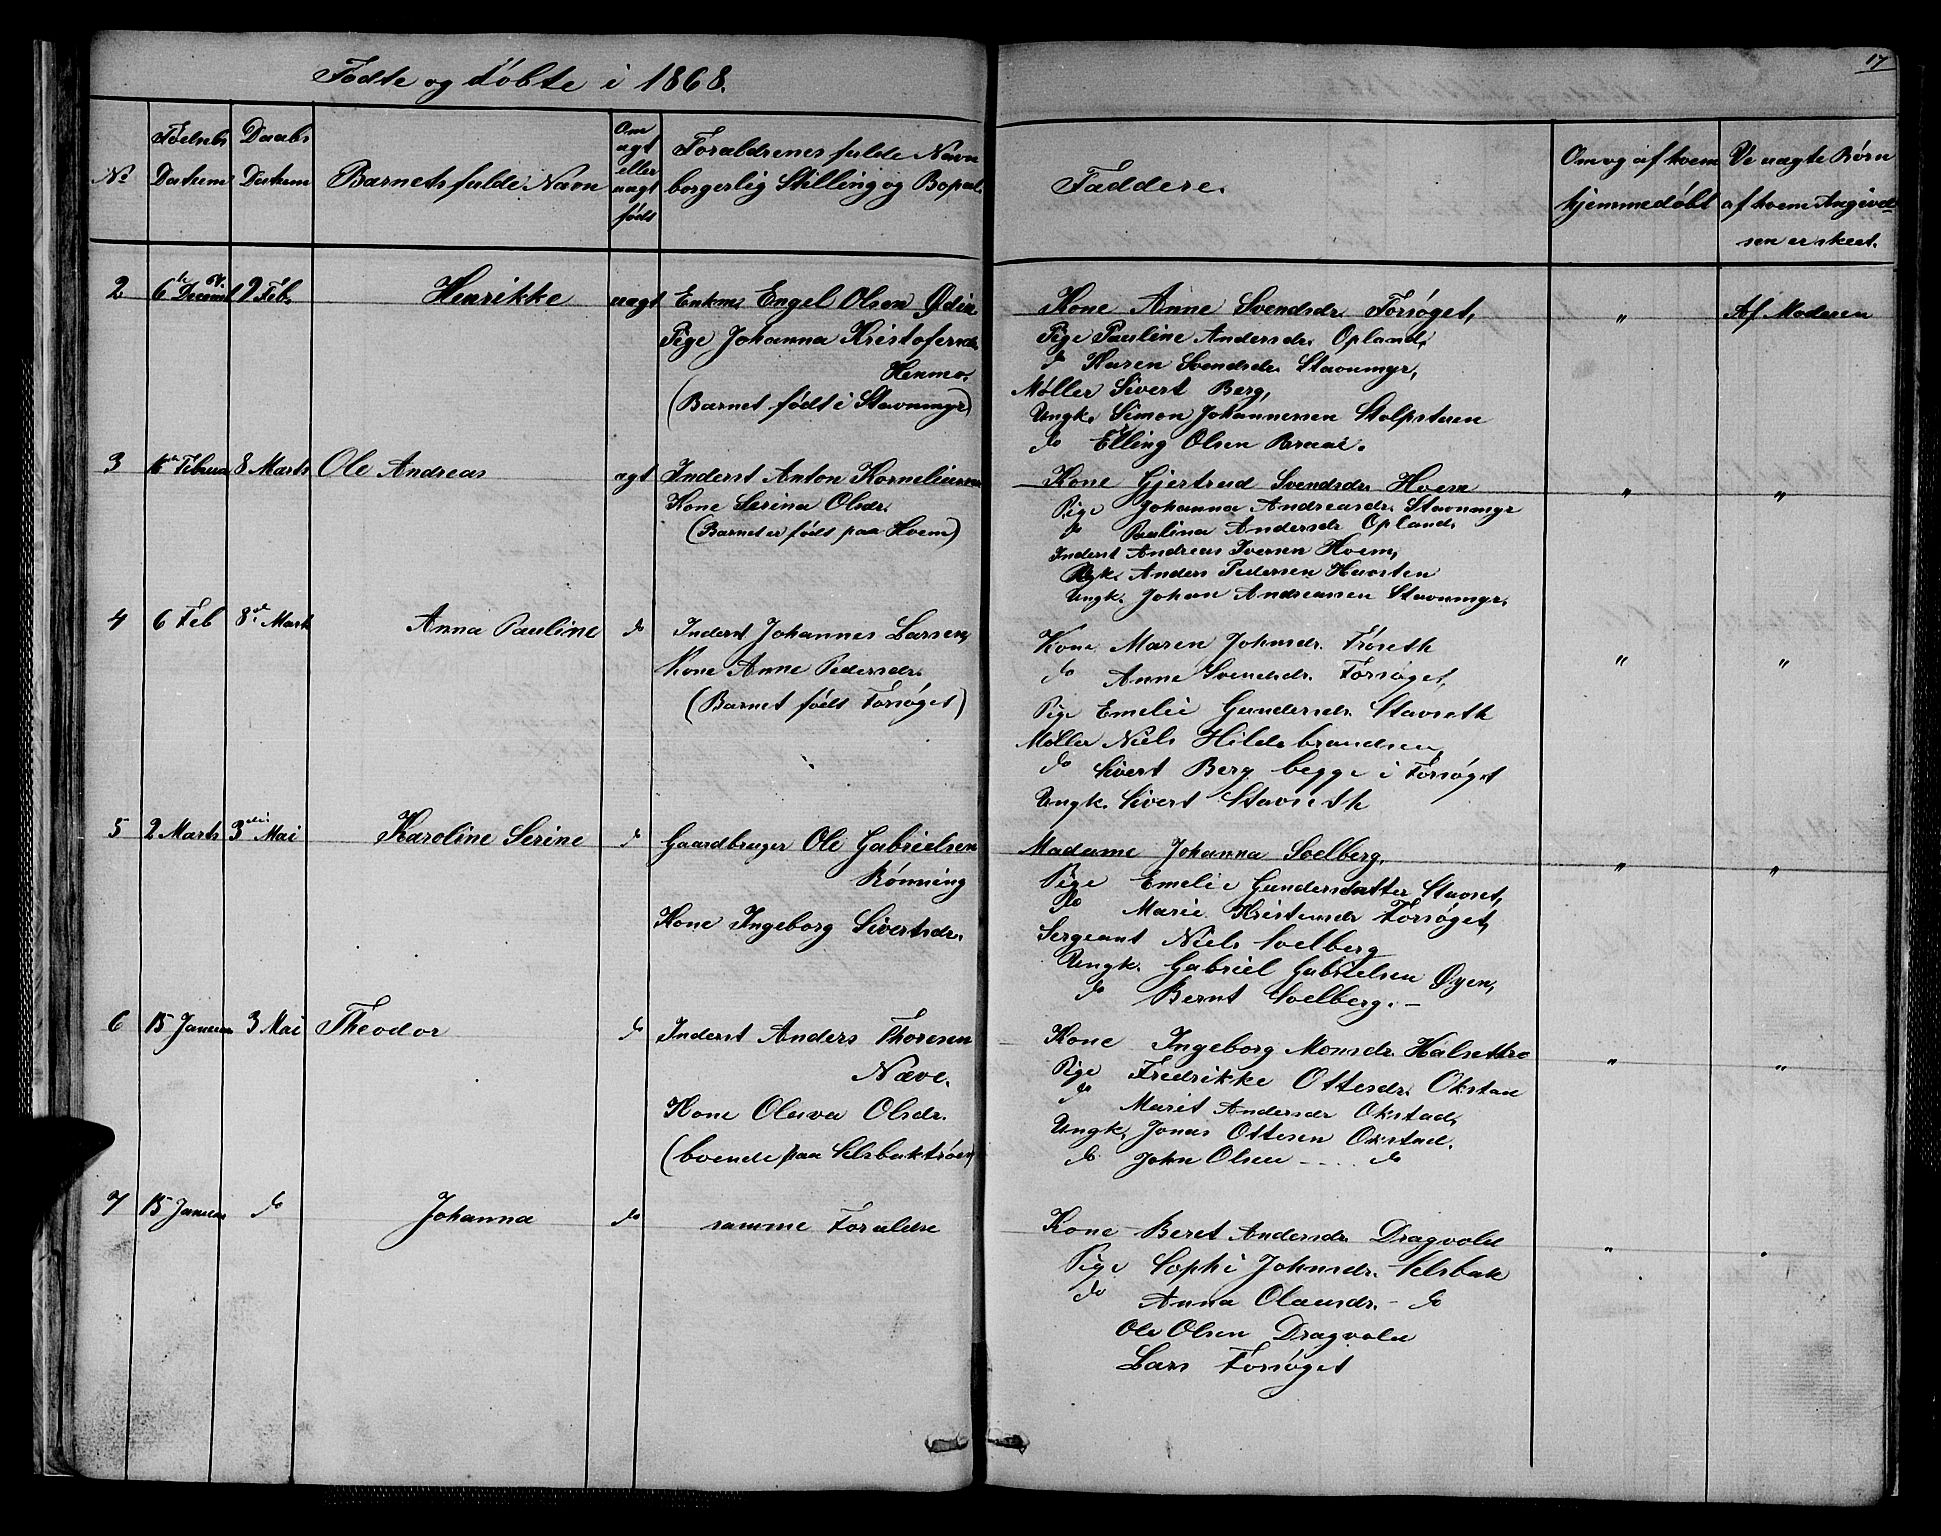 Fødte og døbte i 1868.
17
No
Fødsels Datum
Daabs Datum
Barnets fulde Navn
Om ægt eller uægt født
Forældrenes fulde Navn borgerlig Stilling og Bopæl.
Faddere.
Om og af hvem hjemmedøbt
Ve uægte Børn af hvem Angivelsen er skeet.
2 6te Decemb 67. 9 Feb. Henrikke uægt Enkm. Engel Olsen Ødin
Pige Johanna Kristofersd.
Henmo.
(Barnet født i Stavnmyr)
Kone Anne Svendsdr. Forsøget, " Af Moderen
Pige Pauline Andersdr. Opland,
do Karen Svendsdr. Stavnmyr,
Møller Sivert Berg,
Ungk. Simon Johannessen Stolpstuen
do Elling Olsen Braae.
3 Februa 8 Marts Ole Andreas ægt Inderst Anton Korneliussen
Kone Serina Olsdr.
(Barnet er født paa Hvem)
Kone Gjertrud Svendsdr. Hvem " "
Pige Johanna Andreasdr. Stavnmyr
do Paulina Andersdr. Opland,
Inderst Andreas Iversen Hvem,
Anders Pedersen Haosten
Ungk. Johan Andreassen Stavnmyr.
4 6 Feb 8de Marts Anna Pauline do Inderst Johannes Larsen,
Kone Anne Pedersdr.
(Barnet født Forsøget)
Kone Maren Johnsdr. Frøseth " "
do Anne Svendsdr. Forsøget,
Pige Emelie Gundersdr. Stavseth
Møller Niels Hildebrandsen,
do Sivert Berg begge i Forsøget
Ungk. Sivert Stavseth
5 2 Marts 3die Mai Karoline Serine do Gaardbruger Ole Gabrielsen
Rønning
Kone Ingeborg Sivertsdr.
Madame Johanna Solberg, " "
Pige Emelie Gundersdatter Stavset,
do Marie Kristensdr Forsøget,
Sergeant Niels Solberg
Ungk. Gabriel Gabrielsen Øyen,
do Bernt Solberg. –
6 15 Januar 3 Mai Theodor do Inderst Anders Thoresen
Næve.
Kone Oluva Olsdr.
(boende paa Selsbaktrøen)
Kone Ingeborg Monsdr. Halsettro " "
Pige Fredrikke Ottesdr. Okstad
do Marit Andersdr Okstad,
Ungk. Jonas Ottesen Okstad.
do John Olsen - . . . do
7 15 Januar do Johanna do samme Forældre
Kone Beret Andersdr. Dragvold " "
Pige Sophi Johnsdr. Selsbak
do Anna Olausdr. – do
Ole Olsen Dragvold
Lars Forsøget